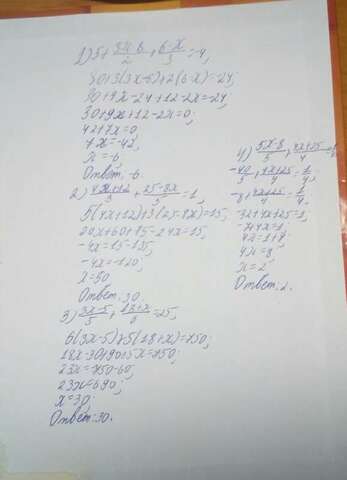 1) 5+ 3x-6/2 + 6-x/3 = -4;
30+3(3x-6)+2(6-x)=-24;
30+9x-24+12-2x=-24;
30+9x+12-2x=0;
42+7x=0;
7x=-42;
x=-6;
Ответ: -6.
2) 4x+12/3 + 25-8x/5 = 1;
5(4x+12)+3(25-8x)=15;
20x+60+75-24x=15;
-4x=15-135;
-4x=-120;
x=30
Ответ: 30.
3) 3x-5/5 + 18+x/6 = 25;
6(3x-5)+5(18+x)=750;
18x-30+90+5x=750;
23x=750-60;
23x=690;
x=30;
Ответ: 30.
4) 5x-8/5 + 4x+25/4 =
-40/5 + 4x+25/4 = 1/4;
-8+ 4x+25/4 = 1/4;
-32+4x+25=1;
-7+4x=1;
4x=1+7;
4x=8;
x=2
Ответ: 2.